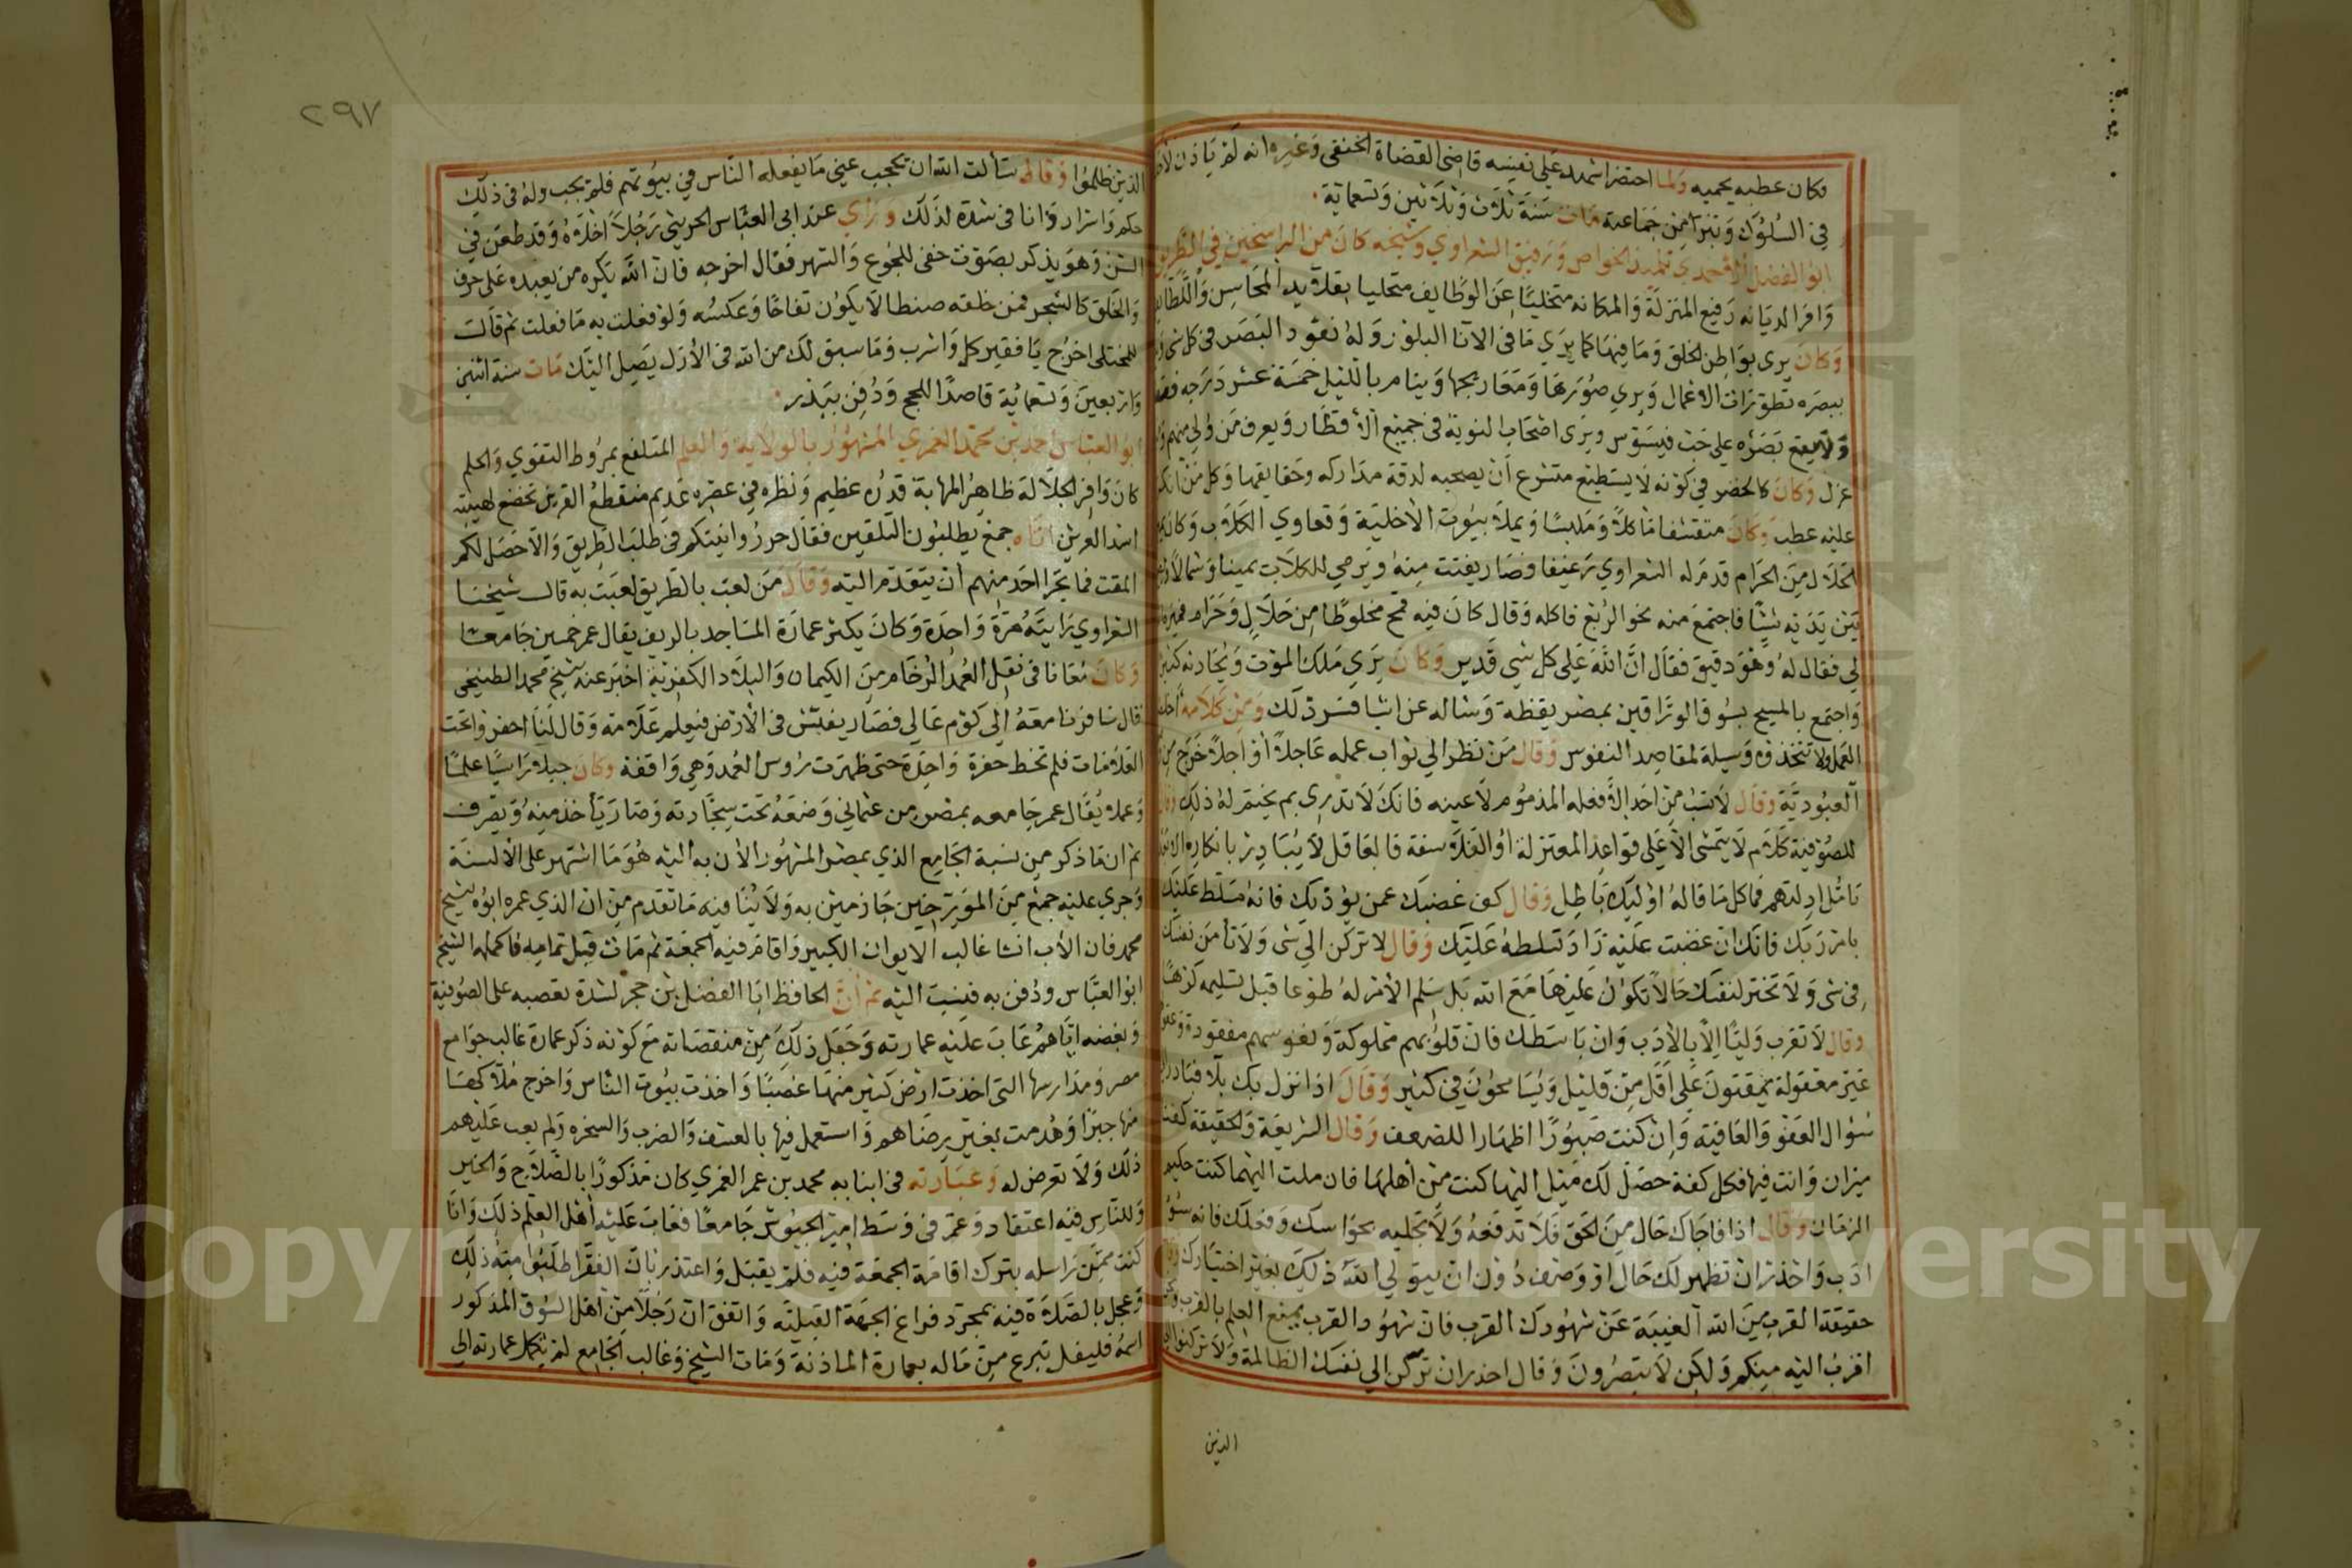 فكان عطبه يحميه ولما احتضر اشهد على نفسه قاضى القضاة الحنفى وغيره انه لم ياذن لاحد
في السلوك وتبرا من جماعته مات سنة ثلاث وثلاثين وتسعماية
ابوا الفضل الاحمدي تلميذ الخواص ورفيق الشعراوي وشيخه كان من الراسخين في الطريق
وافر الديانه رفيع المنزلة والمكانه متخليا عن الوظايف متحليا بقلايد المحاسن واللطايف
وكان يرى بواطن الخلق وما فيها كما يري ما فى الانا البلور وله نفود البصر فى كل شى
ببصره تطورات الاعمال ويري صورها ومعارجها وينام بالليل خمسة عشر درجه فقط
ولا يقع بصره على حب فيسوس ويرى اصحاب النوبة فى جميع الاقطار ويعرف من ولي منهم ومن
عزل وكان كالخضر في كونه لا يستطيع متشرع ان يصحبه لدقة مداركه وخفا يقها وكل من انكر
عليه عطب وكان متقشفا ماكلا وملبسا ويملا بيوت الاخلية وقعاوي الكلاب وكان
الحلال من الحرام قدم له الشعراوي رغيفا فصار يفتت منه ويرمي للكلاب يمينا وشمالا
بين يديه شيا فاجتمع منه نحو الربع فاكله وقال كان فيه قمح مخلوطا من حلال وحرام فميزه
لي فقال له وهو دقيق فقال ان الله على كل شي قدير وكان يري ملك الموت ويحادثه كثيرا
واجتمع بالمسيح بسوق الوراقين بمصر يقظة وساله عن اشيا فسر ذلك ومن كلامه
العمل ولا تتخذوه وسيلة لمقاصد النفوس وقال من نظر الي ثواب عمله عاجلا او اجلا خرج من
العبودية وقال لا تسب من احد الا فعله المذموم لا عينه فانك لا تدري بم يختم له ذلك
للصوفية كلام لا يتمشى الا على قواعد المعتزلة او الفلاسفة فالعاقل لا يبادر بانكاره
تامل ادلتهم فما كل ما قاله اوليك باطل وقال كف غضبك عمن يوذيك فانه مسلط عليك
بامر ربك فانك ان غضبت عليه زاد تسلطه عليك وقال لا تركن الي شى ولا تا من نفسك
فى شى ولا تختر لنفسك حالا تكون عليها مع الله بل سلم الامر له طوعا قبل تسليمه كرها
وقال لا تقرب وليا الا بالادب وان باسطك فان قلوبهم مملوكة ونفوسهم مفقودة
غير معقولة يمقتون على اقل من قليل ويسامحون في كثير وقال اذا نزل بك بلا فبادر
سوال العفو والعافية وان كنت صبورا اظهارا للضعف وقال الشريعة والحقيقة كفتا
ميزان وانت فيها فكل كفة حصل لك ميل اليها كنت من اهلها فان ملت اليهما كنت حكيم
الزمان وقال اذا فاجاك حال من الحق فلا تدفعه ولا تجلبه بحواسك وفعلك فانه سوء
ادب واحذر ان تظهر لك حال او وصف دون ان يتولى الله ذلك بغير اختيارك
حقيقة القرب من الله الغيبة عن شهودك القرب فان شهود القرب يمنع العلم بالقرب
اقرب اليه منكم ولكن لا تبصرون وقال احذر ان تركن الي نفسك الظالمة ولا تركنوا الى
الذين
٢٩٧
الذين ظلموا وقال سألت الله ان يحجب عيني ما يفعله الناس في بيوتهم فلم يحجب وله فى ذلك
حكم واسرار وانا فى شدة لذلك وراي عند ابي العباس الحريثي رجلا اخلاه وقد طعن في
السن وهو يذكر بصوت خفى للجوع والسهر فقال اخرجه فان الله يكره من يعبده على حرف
والخلق كالشجر فمن خلقه صنطا لا يكون تفاحا وعكسه ولو فعلت به ما فعلت ثم قال
للمختلى اخرج يا فقير كل واشرب وما سبق لك من الله فى الازل يصل اليك مات سنة اثنين
واربعين وتسعماية قاصدا للحج ودفن ببدر
ابو العباس احمد بن محمد الغمري المشهور بالولاية والعلم المتلفع بمروط التقوي والحلم
كان وافر الجلالة ظاهر المهابة قدره عظيم ونظره في عصره عديم منقطع القرين تخضع لهيبته
اسد العرين اتاه جمع يطلبون التلقين فقال حرروا نيتكم في طلب الطريق والا حصل لكم
المقت فما تجرا احد منهم ان يتقدم اليه وقال من لعب بالطريق لعبت به قال شيخنا
الشعراوي رايته مرة واحدة وكان يكثر عمارة المساجد بالريف يقال عمر خمسين جامعا
وكان معانا فى نقل العمد الرخام من الكيمان والبلاد الكفرية اخبر عنه شيخ محمد الطنيخى
قال سافرنا معه الي كوم عالي فصار يفتش فى الارض فيعلم علامة وقال لنا احفروا تحت
العلامات فلم تخط حفرة واحدة حتى ظهرت روس العمد وهي واقفة وكان جبلا راسيا علما
وعملا يقال عمر جامعه بمصر من عثماني وضعه تحت سجادته وصار يأخذ منه ويصرف
ثم ان ما ذكر من نسبة الجامع الذي بمصر المشهور الان به اليه هو ما اشتهر على الالسنة
وجري عليه جمع من المورخين جازمين به ولا ينافيه ما تقدم من ان الذي عمره ابوه شيخ
محمد فان الاب انشا غالب الايوان الكبير واقام فيه الجمعة ثم مات قبل تمامه فاكمله الشيخ
ابو العباس ودفن به فنسب اليه ثم ان الحافظ ابا الفضل بن حجر لشدة تعصبه على الصوفية
وبغضه اياهم عاب عليه عمارته وجعل ذلك من منقصاته مع كونه ذكر عمارة غالب جوامع
مصر ومدارسها التى اخذت ارض كثير منها غصبا واخذت بيوت الناس واخرج ملاكها
منها جبرا وهدمت بغير رضاهم واستعمل فيها بالعسف والضرب والسخره ولم يعب عليهم
ذلك ولا تعرض له وعبارته فى انبايه محمد بن عمر الغمري كان مذكورا بالصلاح والخير
وللناس فيه اعتقاد وعمر فى وسط امير الجيوش جامعا فعاب عليه اهل العلم ذلك وانا
كنت ممن راسله بترك اقامة الجمعة فيه فلم يقبل واعتذر بان الفقرا طلبوا منه ذلك
وعجل بالصلاة فيه بمجرد فراغ الجهة القبلية واتفق ان رجلا من اهل السوق المذكور
اسمه فليفل تبرع من ماله بعمارة الماذنة ومات الشيخ وغالب الجامع لم تكمل عمارته الى